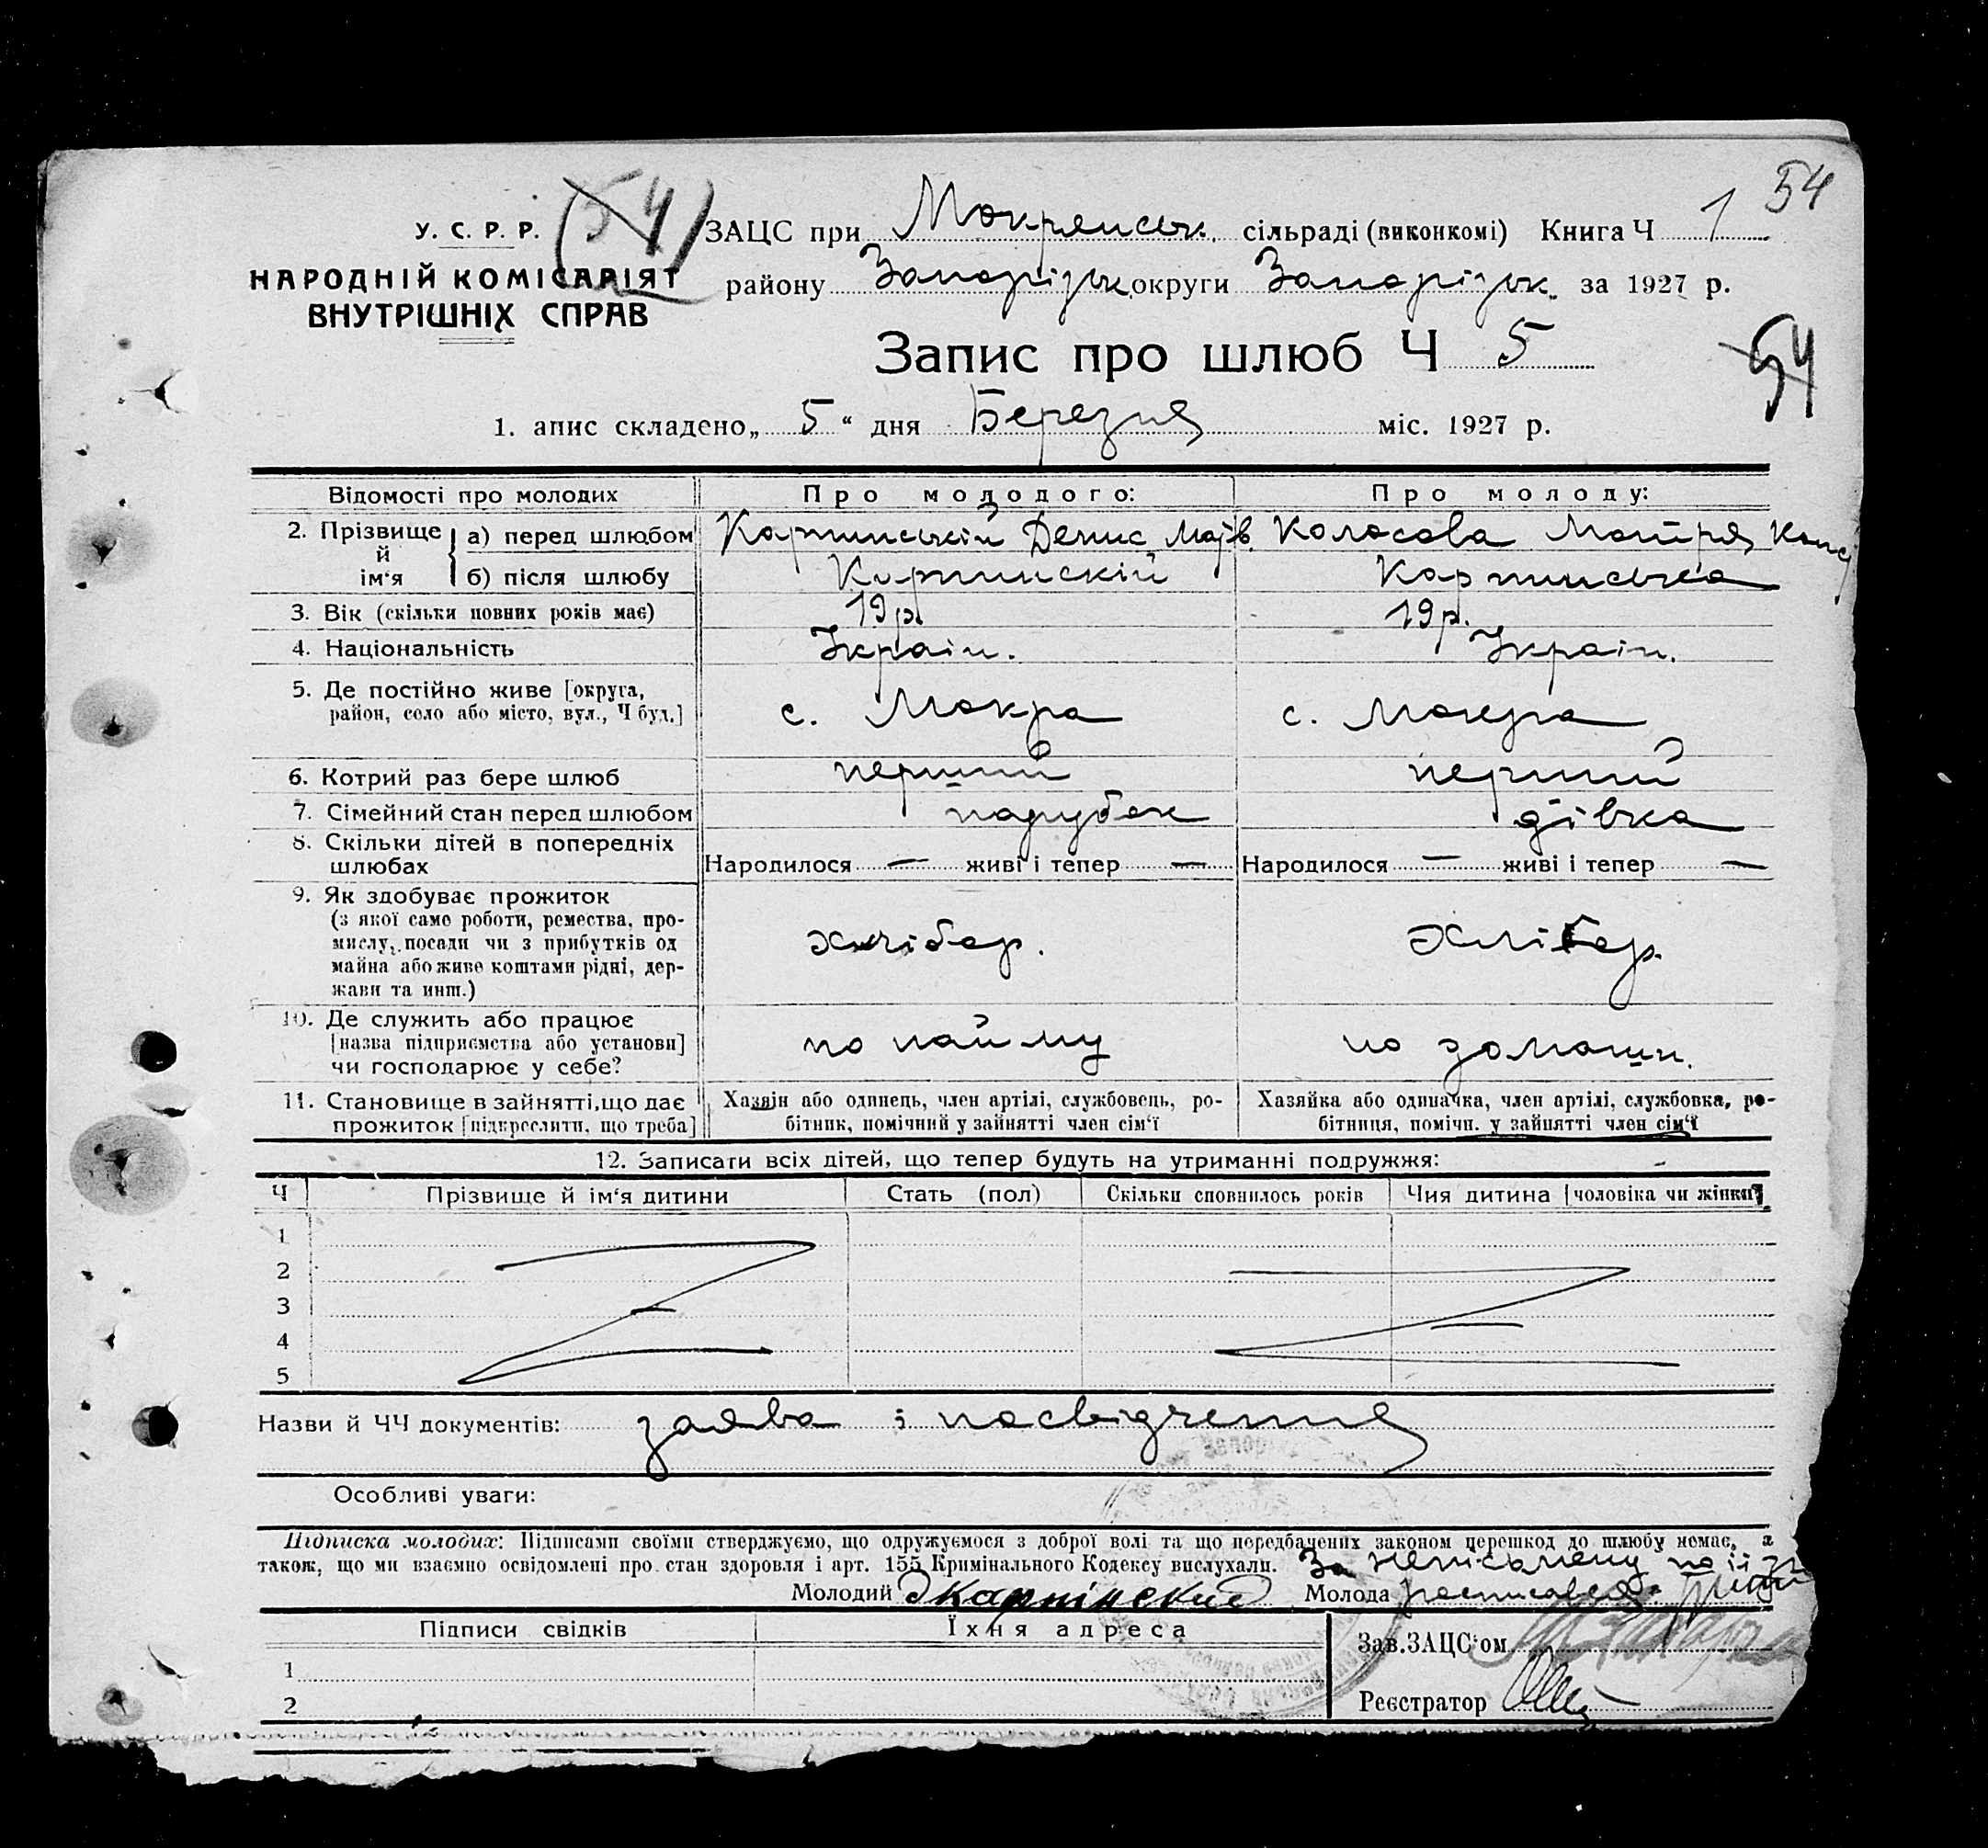 54
У. С. Р. Р. (54) ЗАЦС при Мокрянськ. сільраді (виконкомі) Книга Ч 1
НАРОДНІЙ КОМІСАРІЯТ району Запорізьк. округи Запорізьк. за 1927 р.
ВНУТРІШНІХ СПРАВ
Запис про шлюб Ч 5
54
1. апис складено „ 5 “ дня Березня міс. 1927 р.
Відомості про молодих Про молодого: Про молоду:
2. Прізвище й ім‘я а) перед шлюбом Карпинській Денис Колосова Мотря
б) після шлюбу Карпинскій Карпинська
3. Вік (скільки повних років має) 19 р. 19 р.
4. Національність Украін. Украін.
5. Де постійно живе [округа,
район, село або місто, вул., Ч буд.] с. Мокра с. Мокра
6. Котрий раз бере шлюб перший перший
7. Сімейний стан перед шлюбом парубок дівка
8. Скільки дітей в попередніх
шлюбах Народилося — живі і тепер — Народилося — живі і тепер —
9. Як здобуває прожиток
(з якої само роботи, ремества, про-
мислу, посади чи з прибутків од
майна або живе коштами рідні, дер-
жави та инш.) хлібор. хлібор.
10. Де служить або працює
[назва підприємства або установи]
чи господарює у себе? по найму по домашн.
11. Становище в зайнятті, що дає
прожиток [підкреслити, що треба]
Хазяїн або одинець, член артілі, службовець, ро-
бітник, помічний у зайнятті член сім‘ї
Хазяйка або одиначка, член артілі, службовка, ро-
бітниця, помічн. у зайнятті член сім‘ї
12. Записати всіх дітей, що тепер будуть на утриманні подружжя:
Ч Прізвище й ім‘я дитини Стать (пол) Скільки сповнилось років Чия дитина [чоловіка чи жінки]
1
2
3
4
5
Назви й ЧЧ документів: заява і посвідчення
Особливі уваги:
Підписка молодих: Підписами своїми стверджуємо, що одружуємося з доброї волі та що передбачених законом перешкод до шлюбу немає, а
також, що ми взаємно освідомлені про стан здоровля і арт. 155 Кримінального Кодексу вислухали. За неписьмену по її
Молодий Карпінский Молода росписався
Підписи свідків Їхня адреса Зав. ЗАЦС‘ом
1
2 Реєстратор